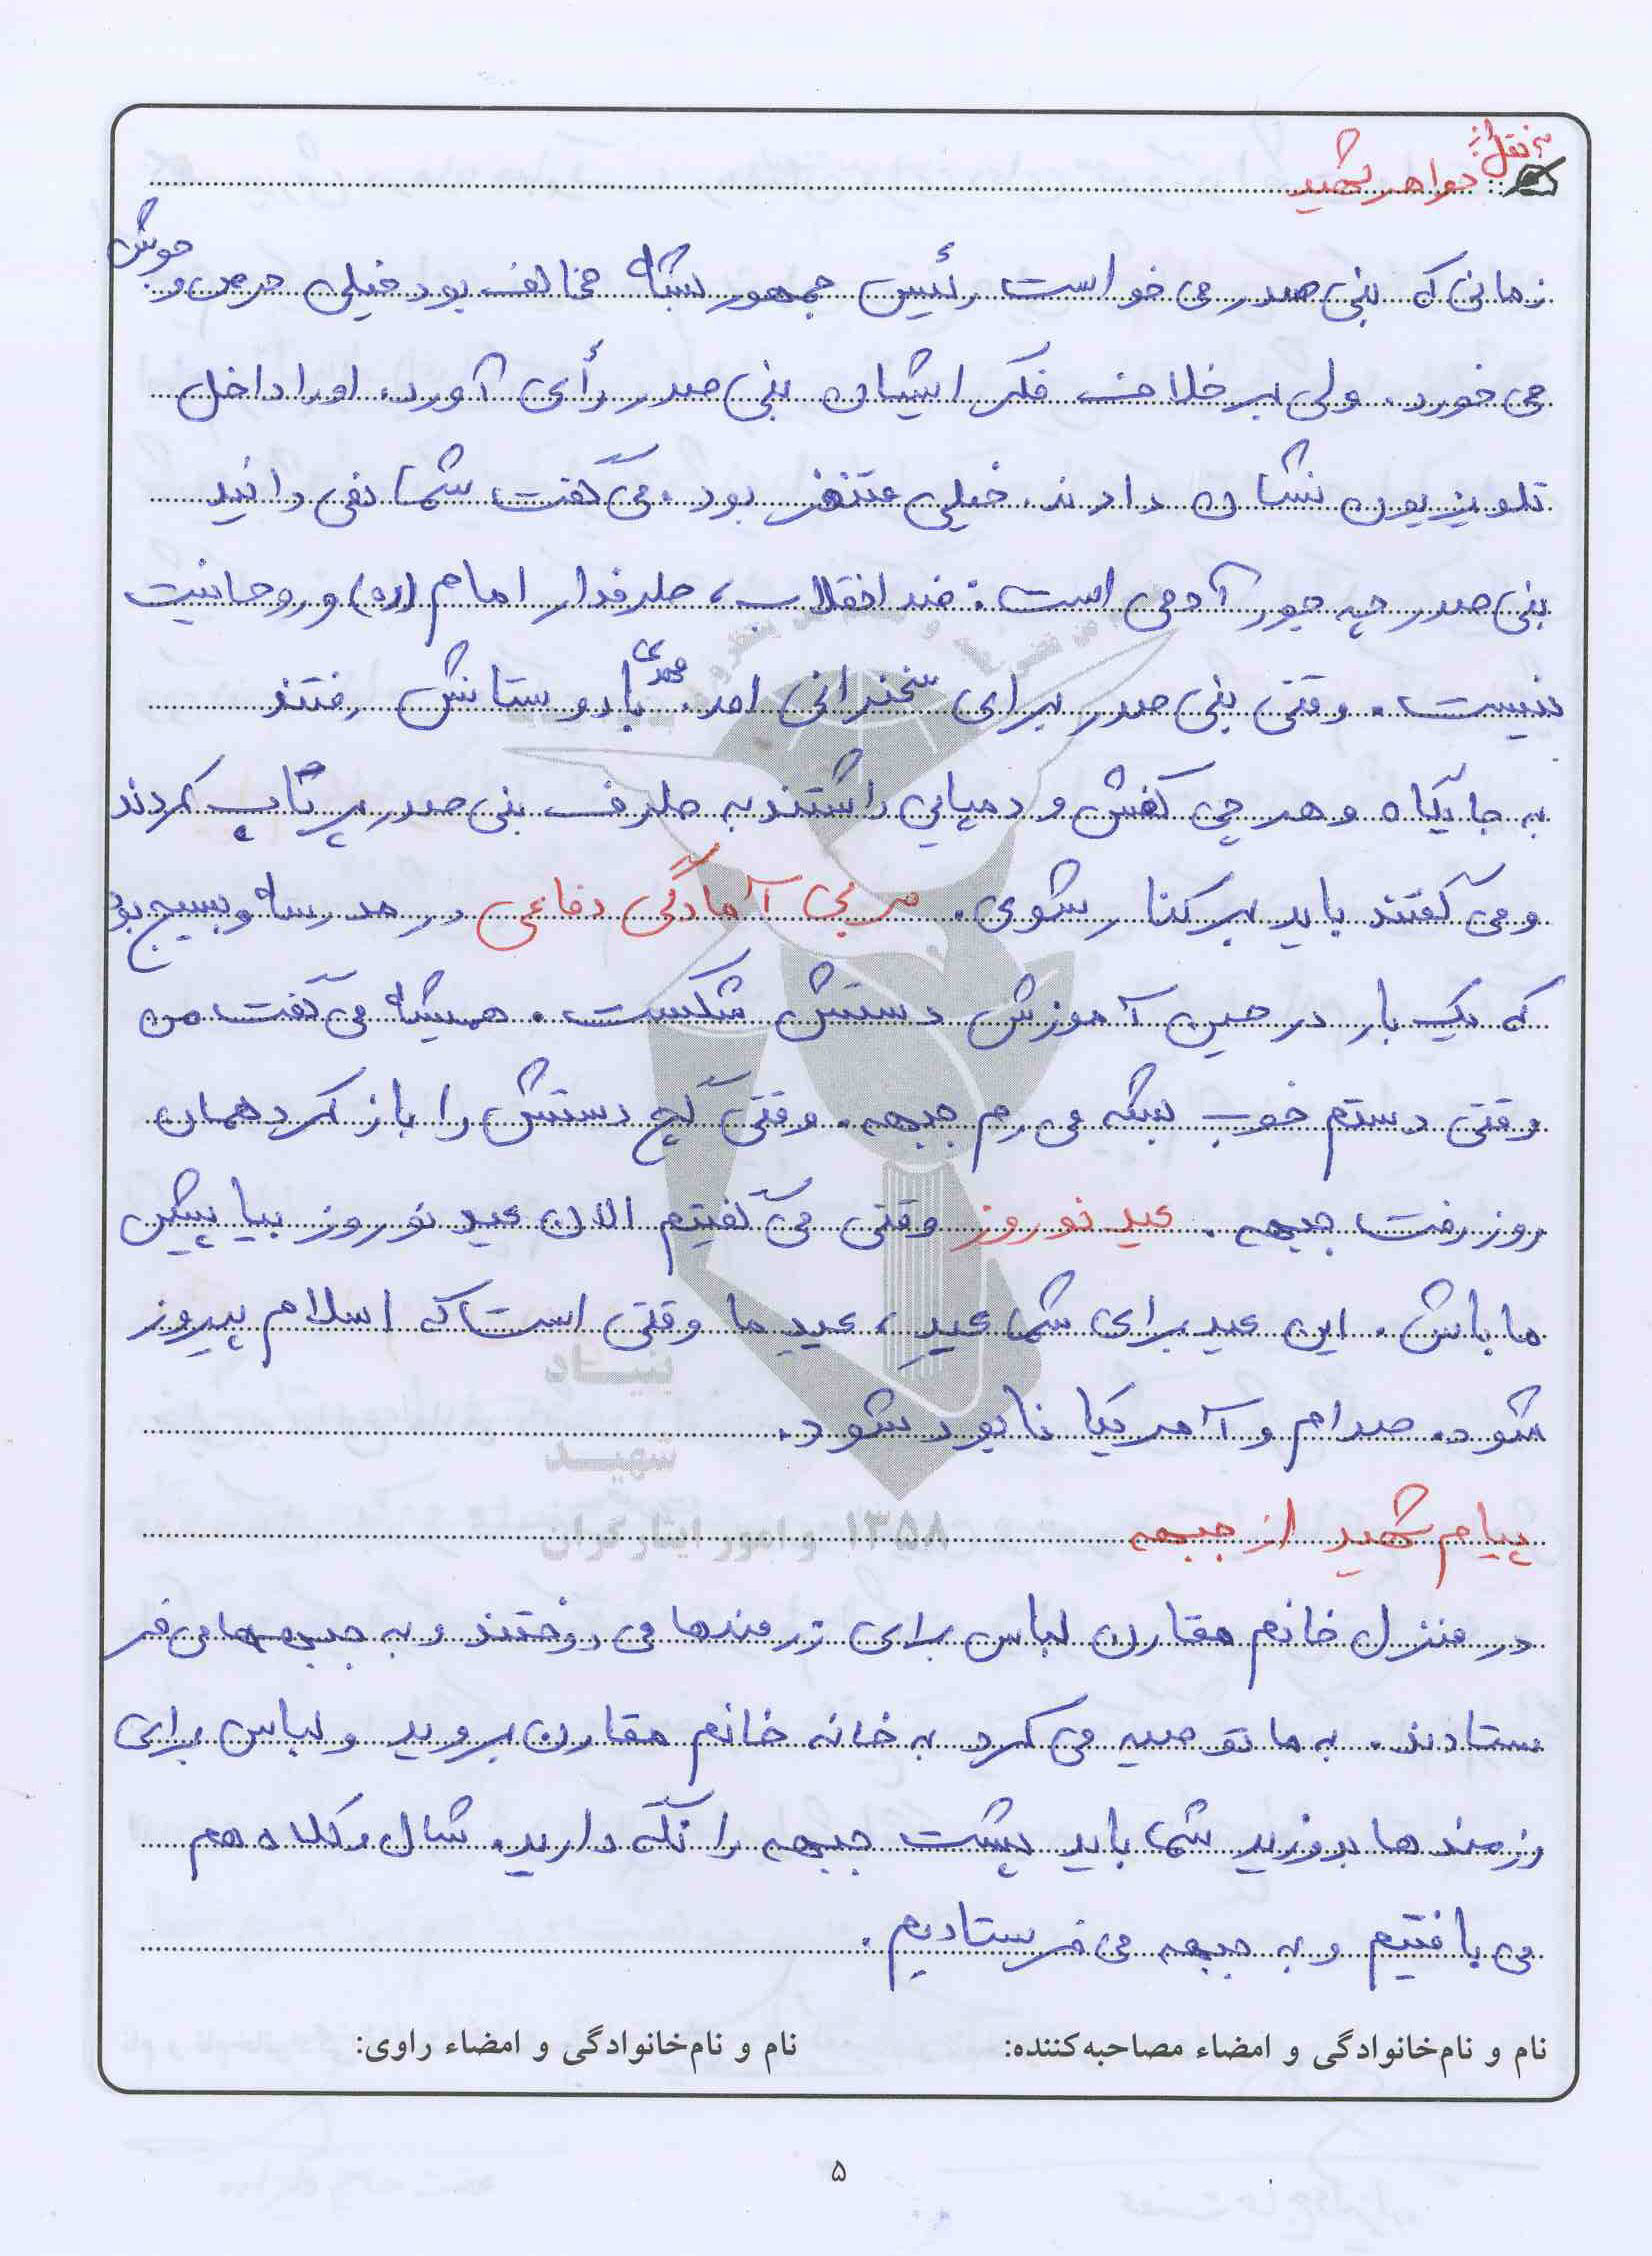 به نقل از:
خواهر شهید
زمانی که بنی صدر می خواست رئیس جمهور بشه مخالف بود خیلی حرص و جوش
می خورد. ولی برخلاف فکر ایشان بنی صدر رأی آورد. او را داخل
تلویزیون نشان دادند. خیلی متنفر بود. می گفت شما نمی دانید
بنی صدر چه جور آدمی است: ضد انقلاب، طرفدار امام (ره) و روحانیت
نیست. وقتی بنی صدر برای سخنرانی امد. مهدی با دوستانش رفتند
به جایگاه و هر چی کفش و دمپایی داشتند به طرف بنی صدر پرتاب کردند
و می گفتند باید برکنار شوی. مربی آمادگی دفاعی در مدرسه و بسیج بود
که یک بار در حین آموزش دستش شکست. همیشه می گفت من
وقتی دستم خوب بشه می رم جبهه. وقتی گچ دستش را باز کرد همان
روز رفت جبهه. عید نوروز وقتی می گفتیم الان عید نوروز بیا پیش
ما باش. این عید برای شما عیدِ، عیدِ ما وقتی است که اسلام پیروز
شود. صدام و آمریکا نابود شود.
پیام شهید از جبهه
در منزل خانم مقارن لباس برای رزمندها می دوختند و به جبهه ها می فر
ستادند. به ما توصیه می کرد به خانه خانم مقارن بروید و لباس برای
رزمندها بدوزید شما باید پشت جبهه را نگه دارید. شال و کلاه هم
می بافتیم و به جبهه می فرستادیم.
بنیاد
شهید
و امور ایثارگران ۱۳۵۸
نام و نام‌خانوادگی و امضاء مصاحبه‌کننده: نام و نام‌خانوادگی و امضاء راوی:
۵